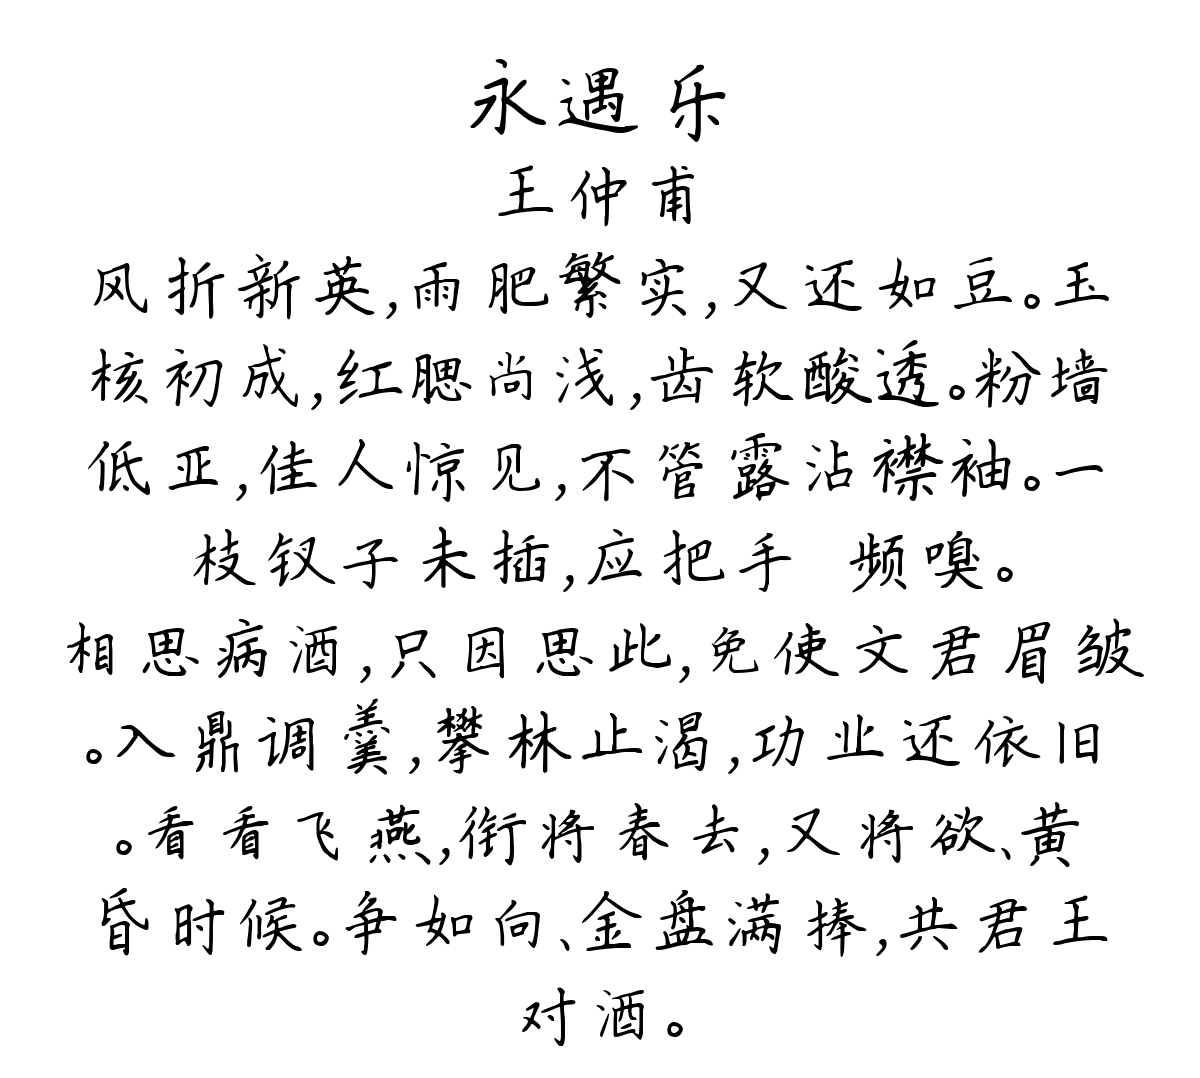 永遇乐
王仲甫
风折新英,雨肥繁实,又还如豆。玉
核初成,红腮尚浅,齿软酸透。粉墙
低亚,佳人惊见,不管露沾襟袖。一
枝钗子未插,应把手 频嗅。
相思病酒,只因思此,免使文君眉皱
。入鼎调羹,攀林止渴,功业还依旧
。看看飞燕,衔将春去,又将欲、黄
昏时候。争如向、金盘满捧,共君王
对酒。